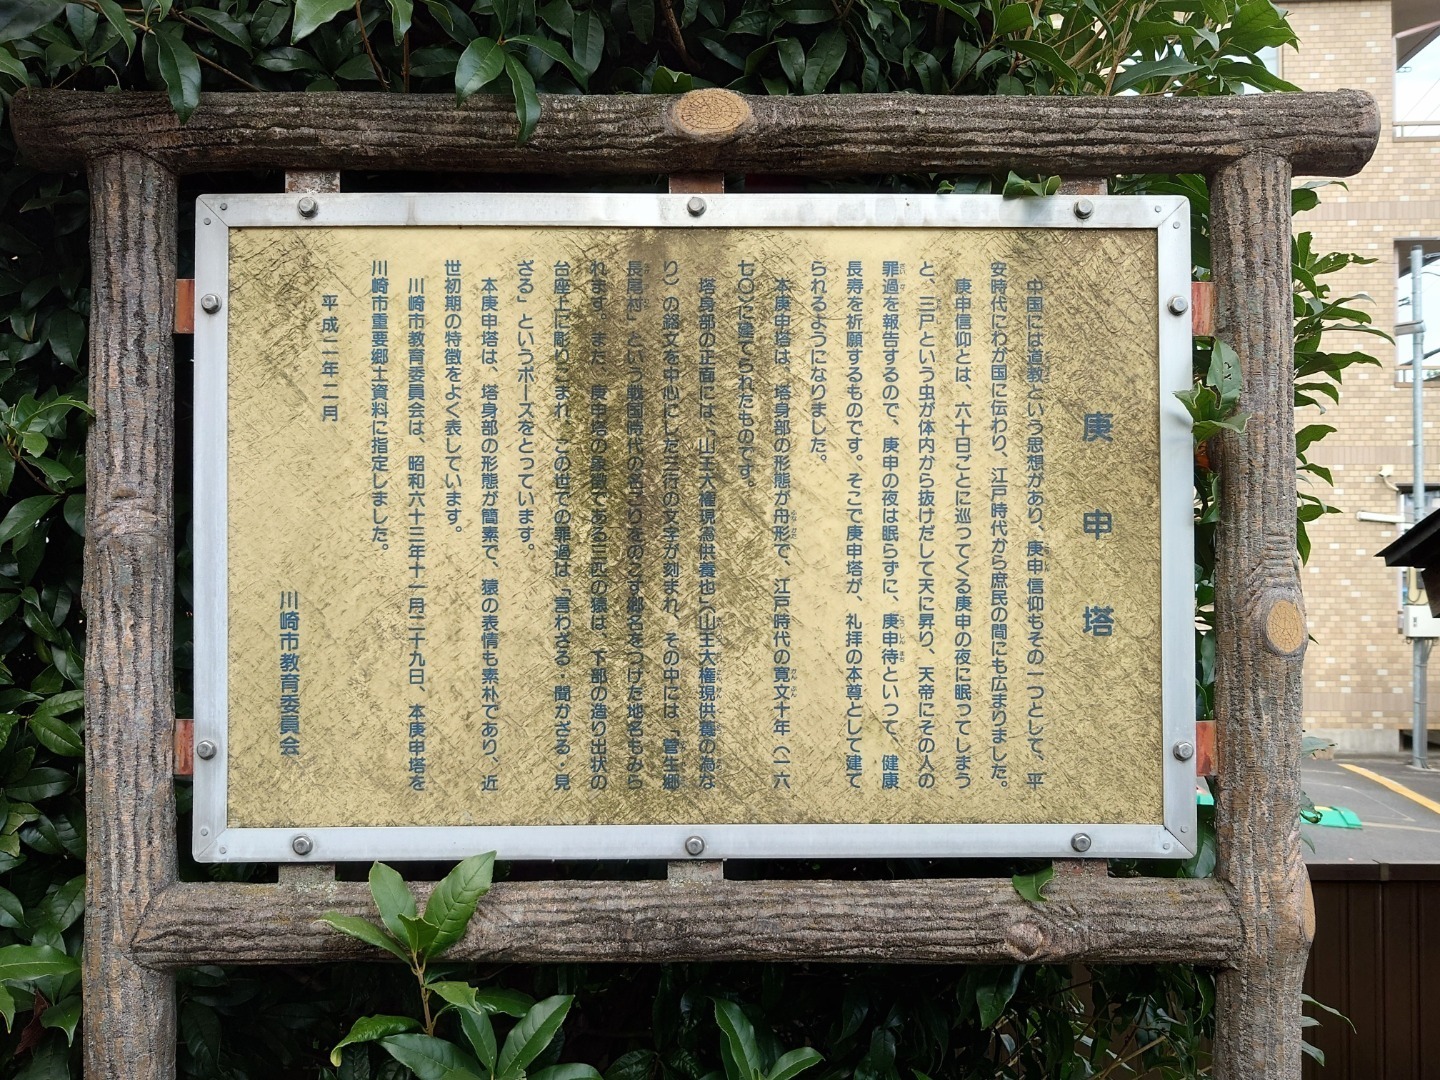 庚申塔
中国には道教という思想があり、庚申信仰もその一つとして、平
安時代にわが国に伝わり、江戸時代から庶民の間にも広まりました。
庚申信仰とは、六十日ごとに巡ってくる庚申の夜に眠ってしまう
と、三尸という虫が体内から抜けだして天に昇り、天帝にその人の
罪過を報告するので、庚申の夜は眠らずに、庚申待といって、健康
長寿を祈願するものです。そこで庚申塔が、礼拝の本尊として建て
られるようになりました。
本庚申塔は、塔身部の形態が舟形で、江戸時代の寛文十年（一六
七〇）に建てられたものです。
塔身部の正面には、「山王大権現為供養也」（山王大権現供養の為な
り）の銘文を中心にした三行の文字が刻まれ、その中には「菅生郷
長尾村」という戦国時代の名ごりをのこす郷名をつけた地名もみら
れます。また、庚申塔の象徴である三匹の猿は、下部の造り出状の
台座上に彫りこまれ、この世での罪過は「言わざる・聞かざる・見
ざる」というポーズをとっています。
本庚申塔は、塔身部の形態が簡素で、猿の表情も素朴であり、近
世初期の特徴をよく表しています。
川崎市教育委員会は、昭和六十三年十一月二十九日、本庚申塔を
川崎市重要郷土資料に指定しました。
平成二年二月
川崎市教育委員会